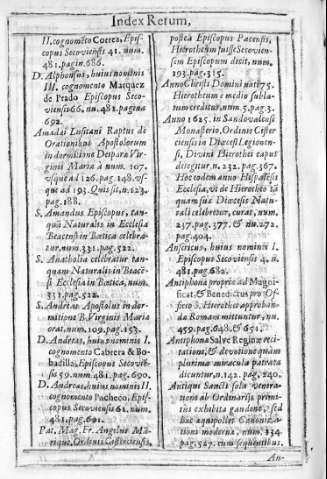 Index Rerum,
II. cognomēto Correa, Epis-
copus Secoviensis 41. num.
481. pagin. 686.
D. Alphonsus, huius nominis
III. cognomento Marquez
de Prado Episcopus Seco-
viensis 66. nu. 481. pagina
692.
Amadai Lusitani Raptus di
Orationibus Apostolorum
in dormitione Deiparæ Vir-
ginis Mariæ à num. 107.
vsque ad 126. pag. 148. vs-
que ad 193. Quis sit, n. 123.
pag. 188.
S. Amandus Episcopus, tan-
quā Naturalis in Ecclesia
Beacensi in Bætica celebra-
tur. num. 331. pag. 522.
S. Anatholia celebratur tan-
quam Naturalis in Beacē-
si Ecclesia in Bætica, num.
331. pag. 522.
S. Andreæ Apostoli in dor-
mitione B. Virginis Mariæ
orat. num. 109. pag. 153.
D. Andreas, huius nominis I.
cognomento Cabrera & Bo-
badilla, Episcopus Secovie-
sis 59. num. 481. pag. 690.
D. Andreas, huius nominis II.
cognomento Pacheco, Epis-
copus Secoviensis 61. num.
481. pag. 691.
Pat. Mag. Fr. Angelus Mā-
rique, Ordinis Cisterciensis,
postea Episcopus Pacensis,
Hierotheum fuisse Secovien-
sem Episcopum dicit, num.
193. pag. 315.
Anno Christi Domini nati 75.
Hierotheum è medio subla-
tum creditur. num. 5. pag. 3.
Anno 1625. in Sandovalensi
Monasterio, Ordinis Cister
ciensis in Diœcesi Legionen-
si, Divini Hierothei caput
detegitur. n. 232. pag. 367.
Hoc eodem anno Hispalēsis
Ecclesia, vt de Hierotheo tā
quam suæ Diœcesis Natu-
rali celebretur, curat, num.
237. pag. 377. & nu. 272.
pag. 404.
Anscricus, huius nominis I.
Episcopus Secoviensis 4. n.
481. pag. 680.
Antiphona propria ad Magni-
ficat, & Benedictus pro Of-
ficio S. Hierothei approban-
da Romam mittuntur, nu.
459. pag. 648. & 651.
Antiphonæ Salve Reginæ reci-
tationi, & devotioni quàm
plurima miracula patrata
dicuntur, n. 142. pag. 240.
Antiqui Sancti sola venera-
tione ab Ordinarijs primi-
tus exhibita gaudent, sed
hoc aquipollet Canoniza-
tioni modernæ, num. 334.
pag. 527. cum sequentibus.
An-